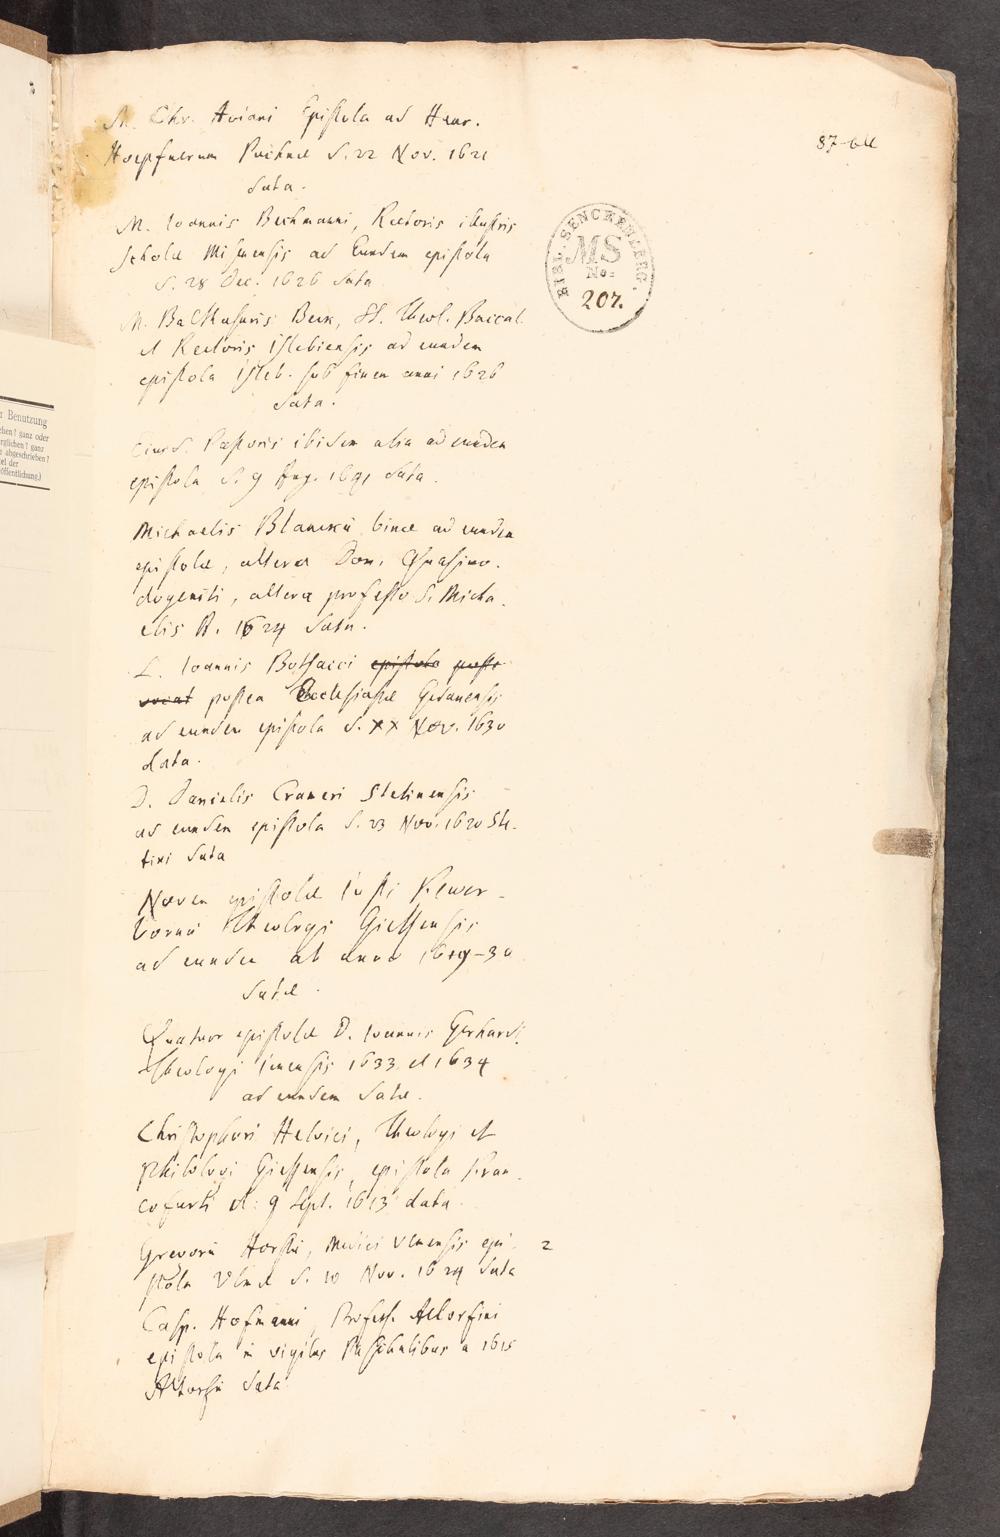 M. Chr. Aviani Epistola ad Henr.
Hoepfnerum d. 22 Nov. 1621
data.
M. Ioannis Bechmanni, Rectoris illustris
Scholae Misnensis ad Eundem epistola
d. 28 Dec. 1626 data
M. Balthasaris Beck, SS. Theol. Baccal.
et Rectoris Islebiensis ad eundem
epistola Isleb. sub finem anni 1626
data.
Eiusd. ibidem alia ad eundem
epistola d. 9 Aug. data.
Michaelis binae ad eundem
epistolae, altera Dom. Quasimo-
dogeniti, altera professo S. Micha-
elis A. 1624 data.
L. Ioannis Botsacci epistola
postea Ecclesiastae Gedanensis
ad eundem epistola d. XX Nov. 1630
data.
D. Danielis Crameri Stetinensis
ad eundem epistola d. 23 Nov. 1620 Ste-
tini data
Novem epistolae Iusti Fewer-
bornii Theologi Giessensis
ad eundem ab anno 1619-30
datae.
Quatuor epistolae D. Ioannis Gerhardi
Theologi Ienensis 1633 et 1634
ad eundem datae.
Christophori Helvici, Theologi et
Philologi Giessensis, epistola Fran-
cofurti d. 9 Sept. 1613 data.
Gregorii Horstii, Medici Ulmensis epi- 2
stola Ulmae d. 10 Nov. 1624 data
Casp. Hofmanni, Profess. Altorfini
epistola in vigiliis Paschalibus a 1615
Altorfii data
BIBL. SENCKENBERG.
MS
No.
207.
r Benutzung
ehen? ganz oder
rglichen? ganz
abgeschrieben?
tel der
öffentlichung)